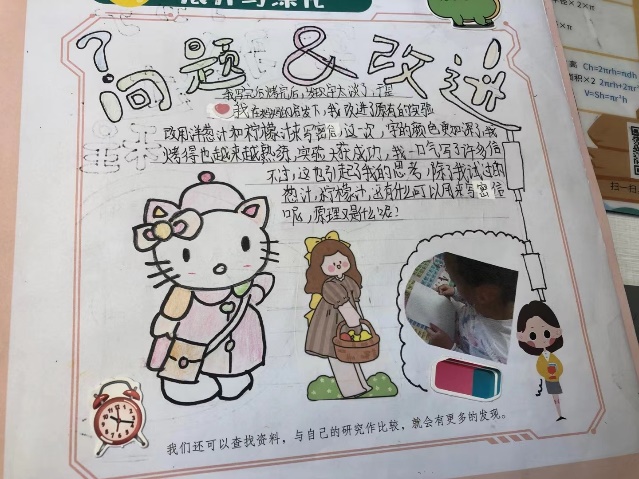 展开与深化
?问题&改进
我写完后烤完后,发现字太淡了,于是
我在妈妈的启发下,我改进了原有的实验
改用洋葱汁和柠檬汁来写密信,这一次,字的颜色更加深了,我
烤得也越来越熟练,实验大获成功,我一口气写了许多信
不过,这也引起了我的思考,除了我试过的
葱汁,柠檬汁,还有什么可以用来写密信
呢,原理又是什么呢?
我们还可以查找资料,与自己的研究作比较,就会有更多的发现。
径×2×π
高 Ch=2πrh=πdh
面积×2 2πrh+2πr²
V=Sh=πr²h
扫一扫